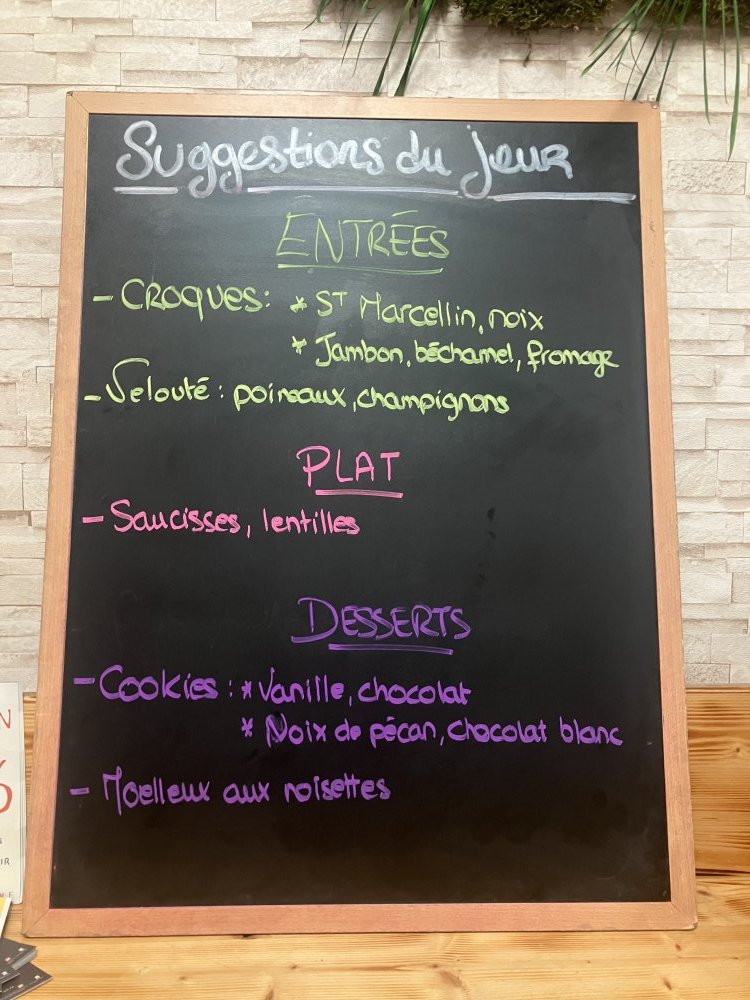 Suggestions du jour
ENTRÉES
- CROQUES: * ST Marcellin, noix
* Jambon, béchamel, fromage
- Velouté : poireaux, champignons
PLAT
- Saucisses, lentilles
DESSERTS
- Cookies : * Vanille, chocolat
* Noix de pécan, chocolat blanc
- Moelleux aux noisettes